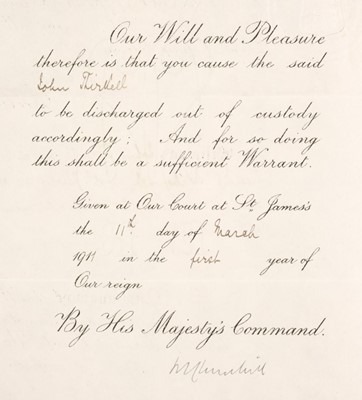 Our Will and Pleasure
therefore is that you cause the said
John Thirkell
to be discharged out of custody
accordingly; And for so doing
this shall be a sufficient Warrant.
Given at Our Court at St. James's
the 11th day of March
1911 in the first year of
Our reign
By His Majesty's Command.